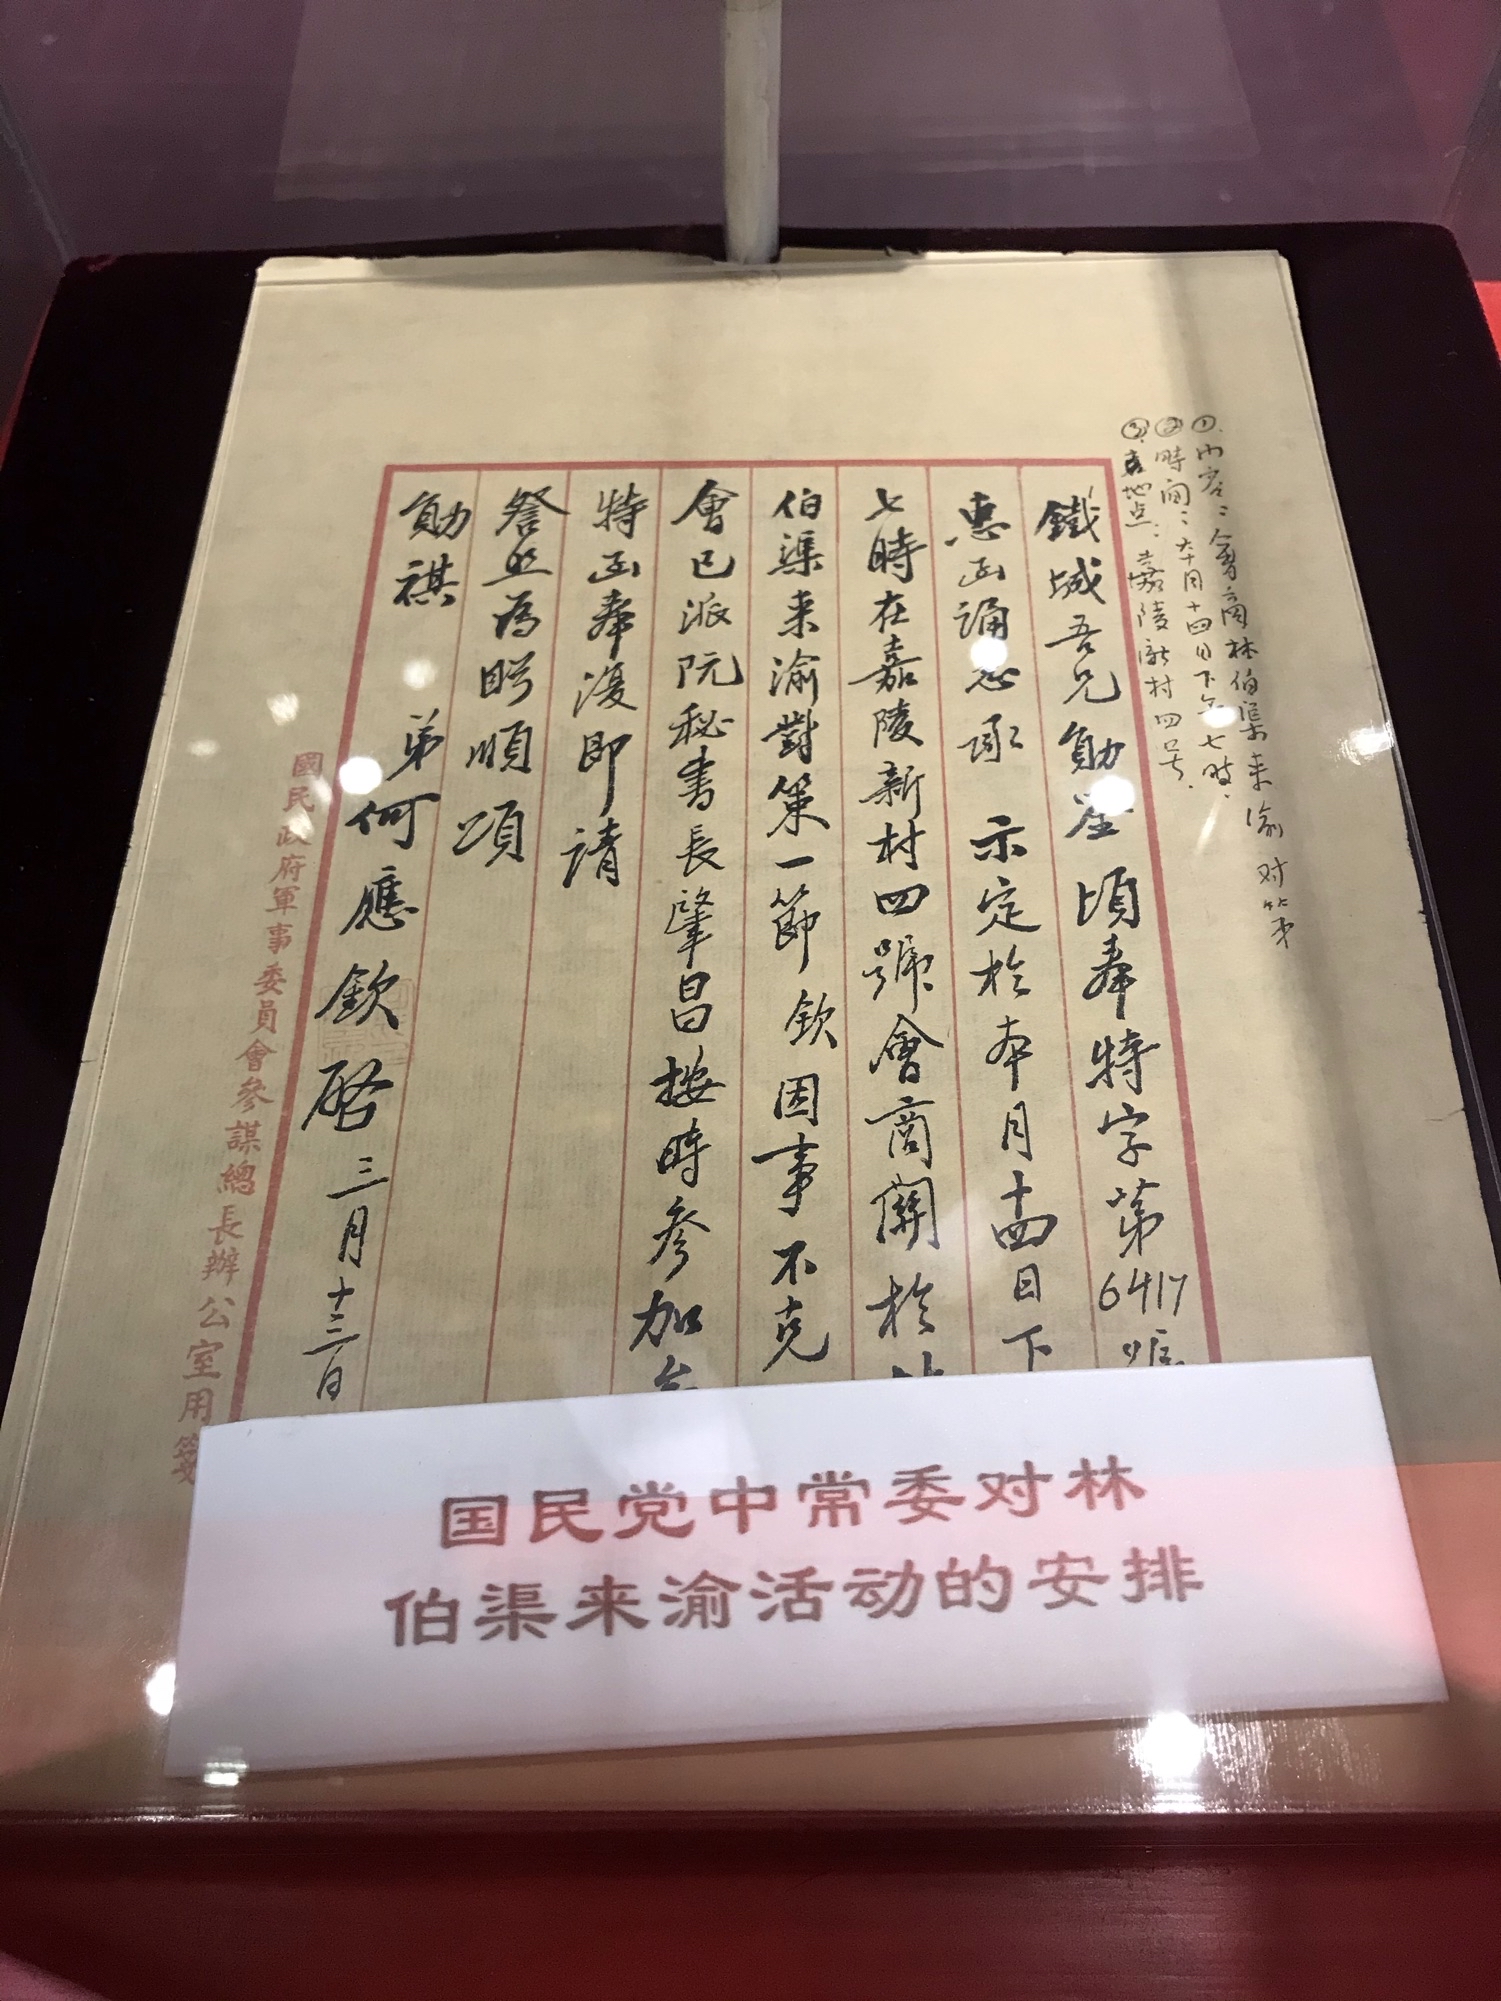 ①内容：會商林伯渠来渝对策
②時间：本月十四日下午七时.
③地点：嘉陵新村四号.
鐵城吾兄勛鉴 頃奉特字第6417號
惠函誦悉承 示定於本月十四日下
七時在嘉陵新村四號會商關於
伯渠来渝對策一節 欽因事不克
會已派阮秘書長肇昌按時參加
特函奉復即請
詧照為盼順頌
勛祺 弟何應欽啓 三月十三日
國民政府軍事委員會參謀總長辦公室用箋
国民党中常委对林
伯渠来渝活动的安排